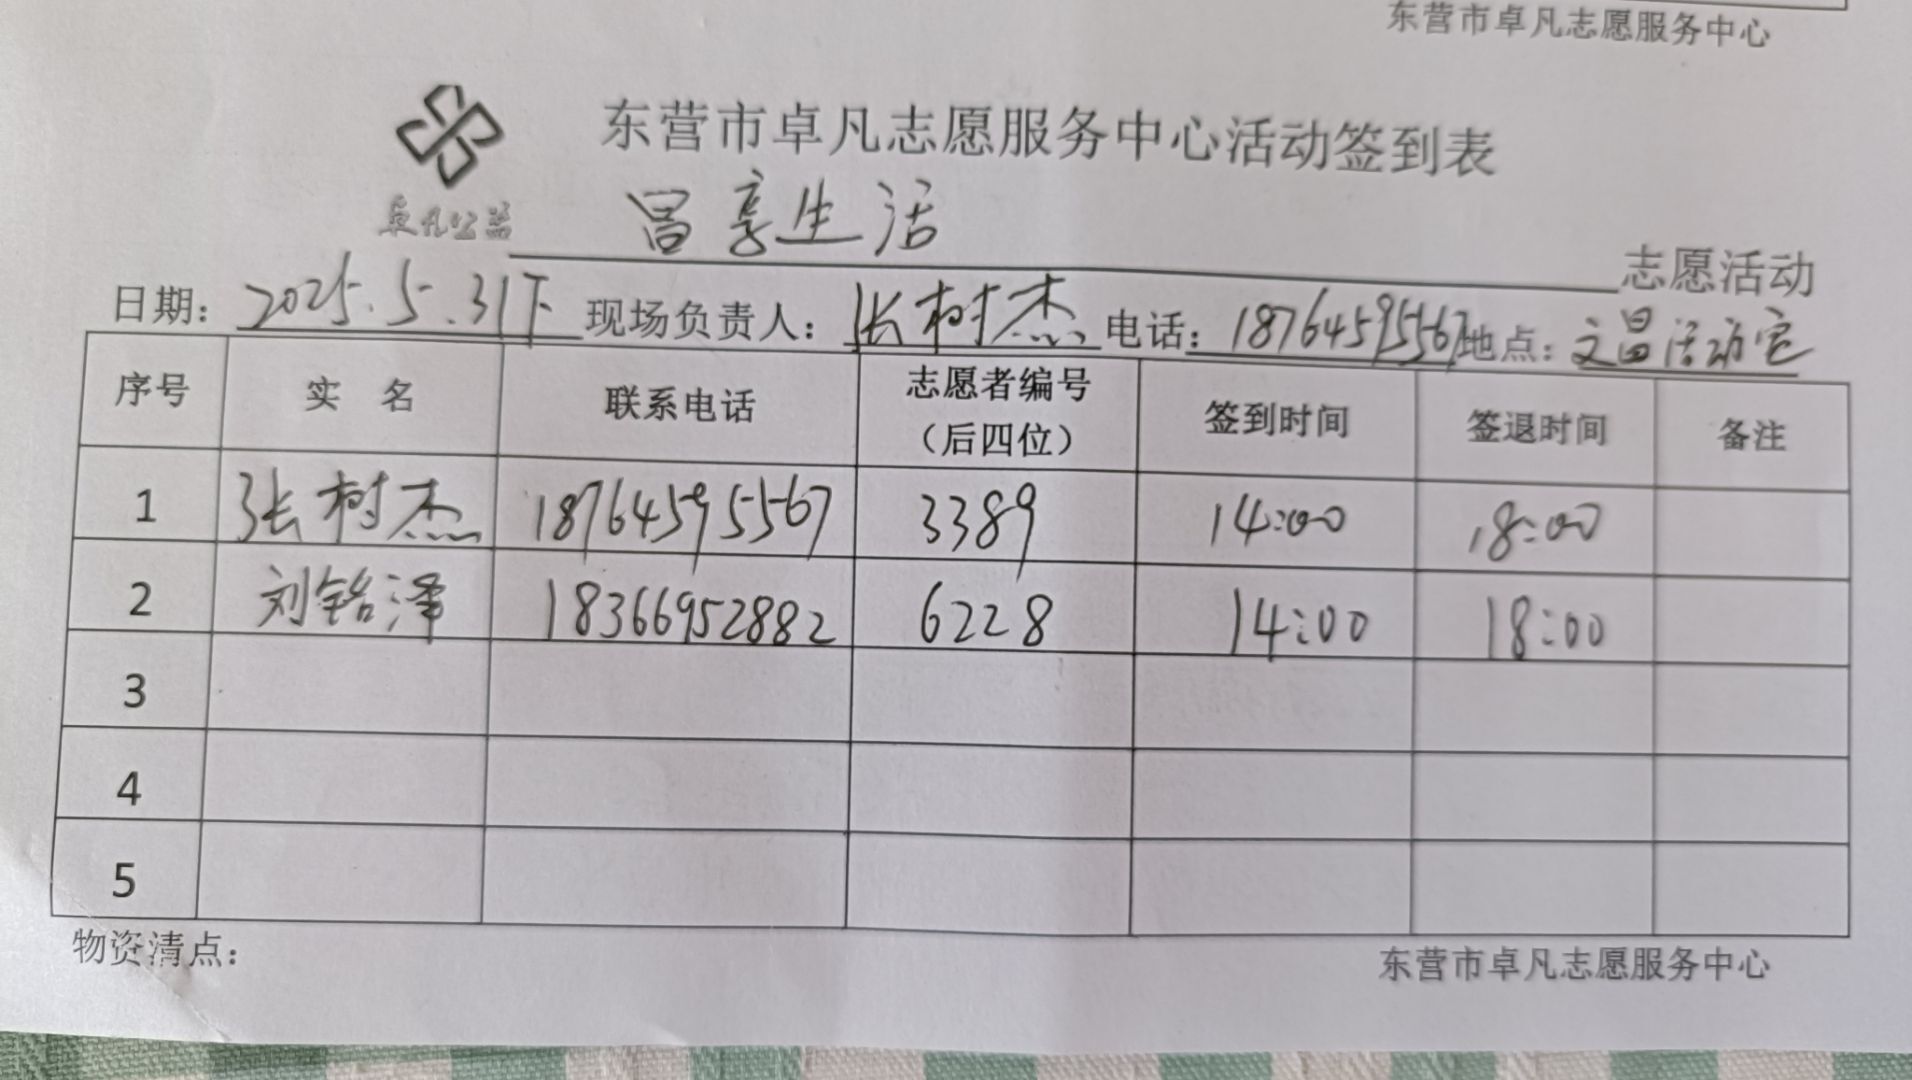 东营市卓凡志愿服务中心
东营市卓凡志愿服务中心活动签到表
卓凡公益
昌享生活 志愿活动
日期：2025.5.31下 现场负责人：张树杰 电话：18764595567 地点：文昌活动室
序号 实 名 联系电话 志愿者编号（后四位） 签到时间 签退时间 备注
1 张树杰 18764595567 3389 14:00 18:00
2 刘铭泽 18366952882 6228 14:00 18:00
3
4
5
物资清点： 东营市卓凡志愿服务中心